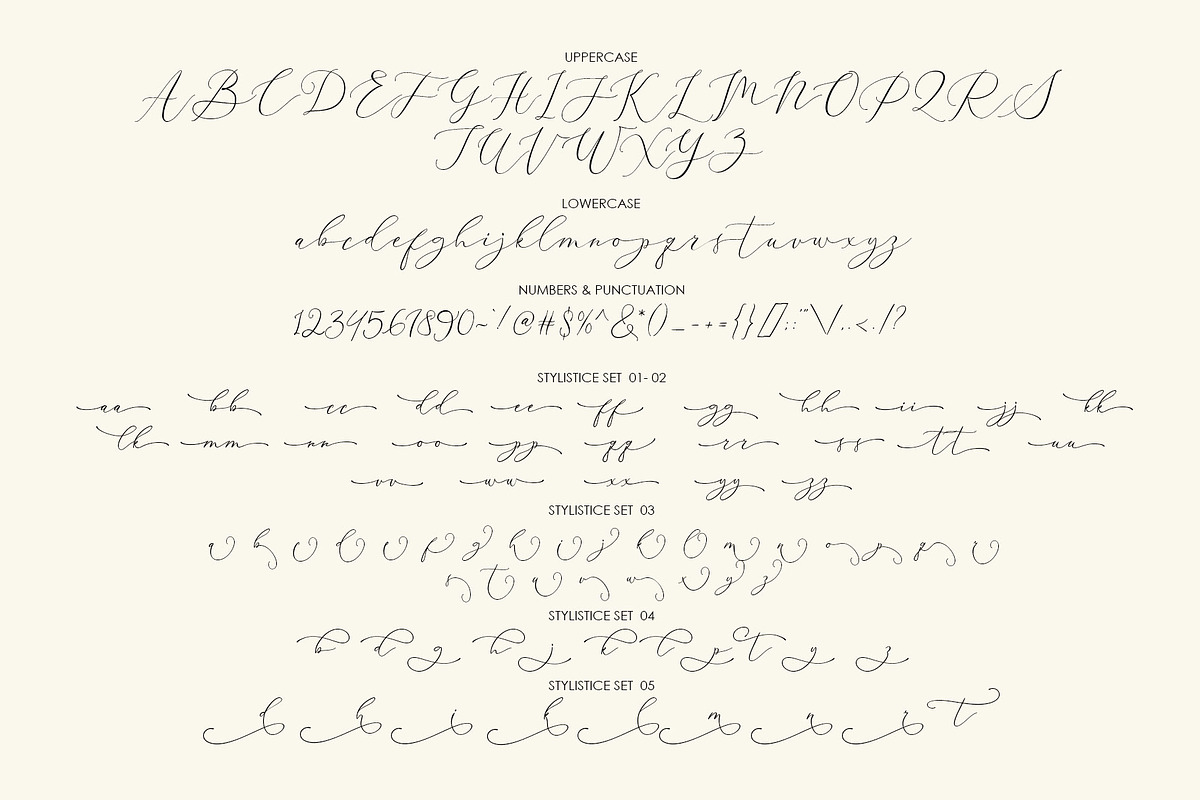 UPPERCASE
ABCDEFGHIJKLMNOPQRS
TUVWXYZ
LOWERCASE
abcdefghijklmnopqrstuvwxyz
NUMBERS & PUNCTUATION
1234567890~`/@#$%^&*()_-+={}[]:;"'\/,.<.>/?
STYLISTICE SET 01-02
aa bb cc dd ee ff gg hh ii jj kk
lk mm nn oo pp qq rr ss tt uu
vv ww xx yy zz
STYLISTICE SET 03
a b c d e f g h i j k l m n o p q r
s t u v w x y z
STYLISTICE SET 04
b d g h j k l p t y z
STYLISTICE SET 05
d h i k l m n r t